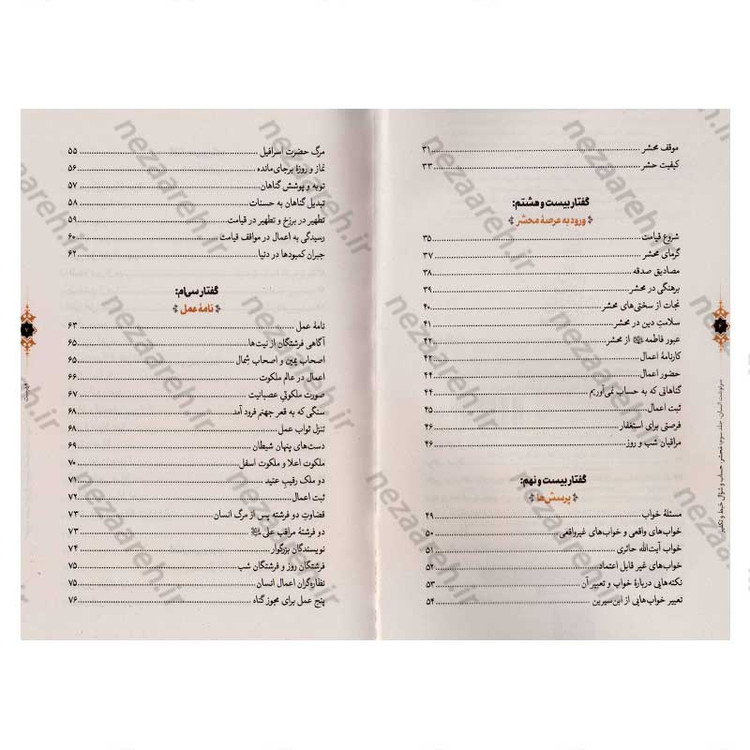 موقف محشر ... ۳۱
کیفیت حشر ... ۳۳
گفتار بیست و هشتم:
ورود به عرصهٔ محشر
شروع قیامت ... ۳۵
گرمای محشر ... ۳۷
مصادیق صدقه ... ۳۸
برهنگی در محشر ... ۳۹
نجات از سختی‌های محشر ... ۴۰
سلامت دین در محشر ... ۴۱
عبور فاطمه از محشر ... ۴۲
کارنامهٔ اعمال ... ۴۲
حضور اعمال ... ۴۴
گناهانی که به حساب نمی‌آوریم ... ۴۴
ثبت اعمال ... ۴۵
فرصتی برای استغفار ... ۴۶
مراقبان شب و روز ... ۴۶
گفتار بیست و نهم:
پرسش‌ها
مسئلهٔ خواب ... ۴۹
خواب‌های واقعی و خواب‌های غیرواقعی ... ۵۰
خواب آیت‌الله حائری ... ۵۱
خواب‌های غیر قابل اعتماد ... ۵۲
نکته‌هایی دربارهٔ خواب و تعبیر آن ... ۵۳
تعبیر خواب‌هایی از ابن‌سیرین ... ۵۴
سرنوشت انسان، جلد سوم: محشر، حساب و سؤال، حبط و تکفیر
مرگ حضرت اسرافیل ... ۵۵
نماز و روزهٔ برجای‌مانده ... ۵۶
توبه و پوشش گناهان ... ۵۷
تبدیل گناهان به حسنات ... ۵۸
تطهیر در برزخ و تطهیر در قیامت ... ۵۹
رسیدگی به اعمال در مواقف قیامت ... ۶۰
جبران کمبودها در دنیا ... ۶۲
گفتار سی‌ام:
نامهٔ عمل
نامهٔ عمل ... ۶۳
آگاهی فرشتگان از نیت‌ها ... ۶۵
اصحاب یمین و اصحاب شمال ... ۶۵
اعمال در عالم ملکوت ... ۶۶
صورت ملکوتی عصبانیت ... ۶۷
سنگی که به قعر جهنم فرود آمد ... ۶۸
تنزل ثواب عمل ... ۶۸
دست‌های پنهان شیطان ... ۶۹
ملکوت اعلا و ملکوت اسفل ... ۷۰
دو ملک رقیب عتید ... ۷۱
ثبت اعمال ... ۷۲
قضاوت دو فرشته پس از مرگ انسان ... ۷۳
دو فرشتهٔ مراقب علی ... ۷۳
نویسندگان بزرگوار ... ۷۴
فرشتگان روز و فرشتگان شب ... ۷۵
نظاره‌گران اعمال انسان ... ۷۵
پنج عمل برای مجوز گناه ... ۷۶
nezaareh.ir